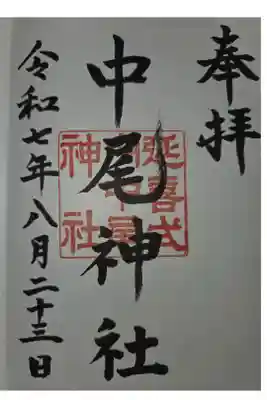 奉拝
延喜式
中尾神社
神社
令和七年八月二十三日